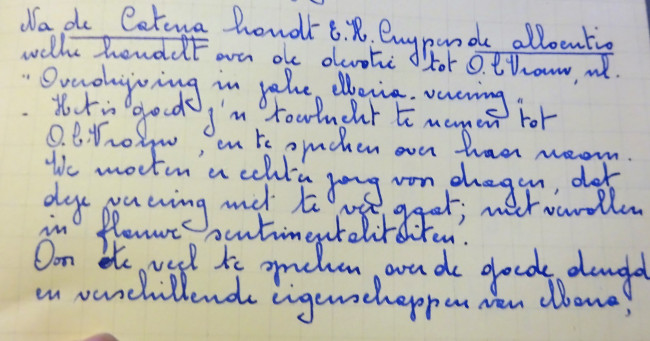 Na de Catena houdt E.H. Cuypers de allocutio
welke handelt over de devotie tot O.L.Vrouw, nl.
"Overdrijving in zake Maria-verering".
- Het is goed z'n toevlucht te nemen tot
O.L.Vrouw, en te spreken over haar naam.
We moeten er echter zorg von dragen, dat
deze verering niet te ver gaat; niet vervallen
in flauwe sentimentaliteiten.
Door te veel te spreken over de goede deugd
en verschillende eigenschappen van Maria,